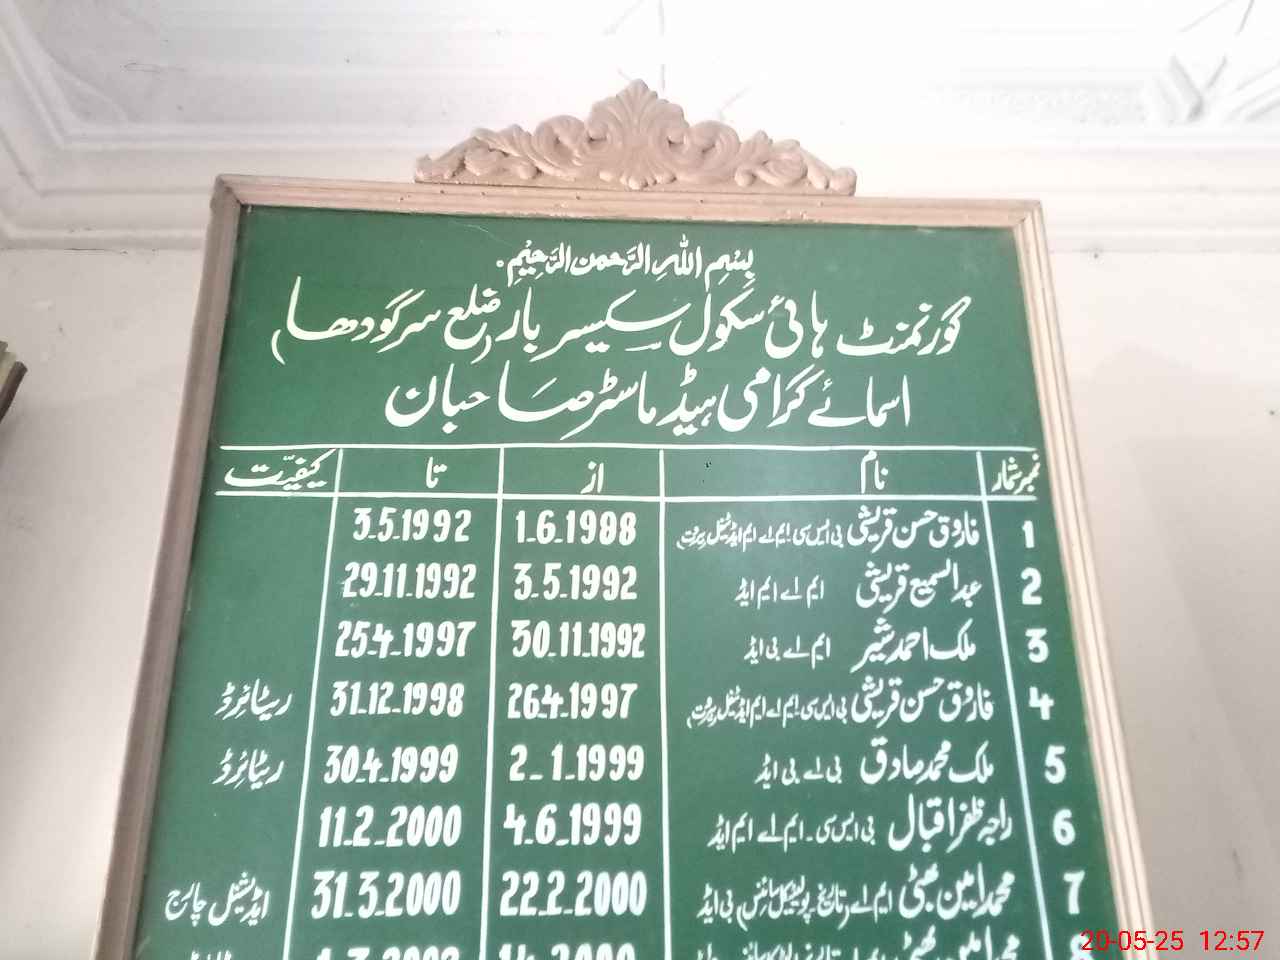 بِسْمِ اللہِ الرَّحمٰنِ الرَّحِیْمِ
گورنمنٹ ہائی سکول سکیسر بار (ضلع سرگودھا)
اسمائے گرامی ہیڈ ماسٹر صاحبان
نمبر شمار نام از تا کیفیّت
1 فاروق حسن قریشی بی ایس سی۔ ایم اے ایم ایڈ 1.6.1988 3.5.1992
2 عبدالسمیع قریشی ایم اے ایم ایڈ 3.5.1992 29.11.1992
3 ملک احمد شیر ایم اے بی ایڈ 30.11.1992 25.4.1997
4 فاروق حسن قریشی بی ایس سی۔ ایم اے ایم ایڈ 26.4.1997 31.12.1998 ریٹائرڈ
5 ملک محمد صادق بی اے بی ایڈ 2.1.1999 30.4.1999 ریٹائرڈ
6 راجہ ظفر اقبال بی ایس سی۔ ایم اے ایم ایڈ 4.6.1999 11.2.2000
7 محمد امین بھٹی ایم اے (تاریخ۔ پولیٹیکل سائنس) بی ایڈ 22.2.2000 31.3.2000 ایڈیشنل چارج
20-05-25 12:57